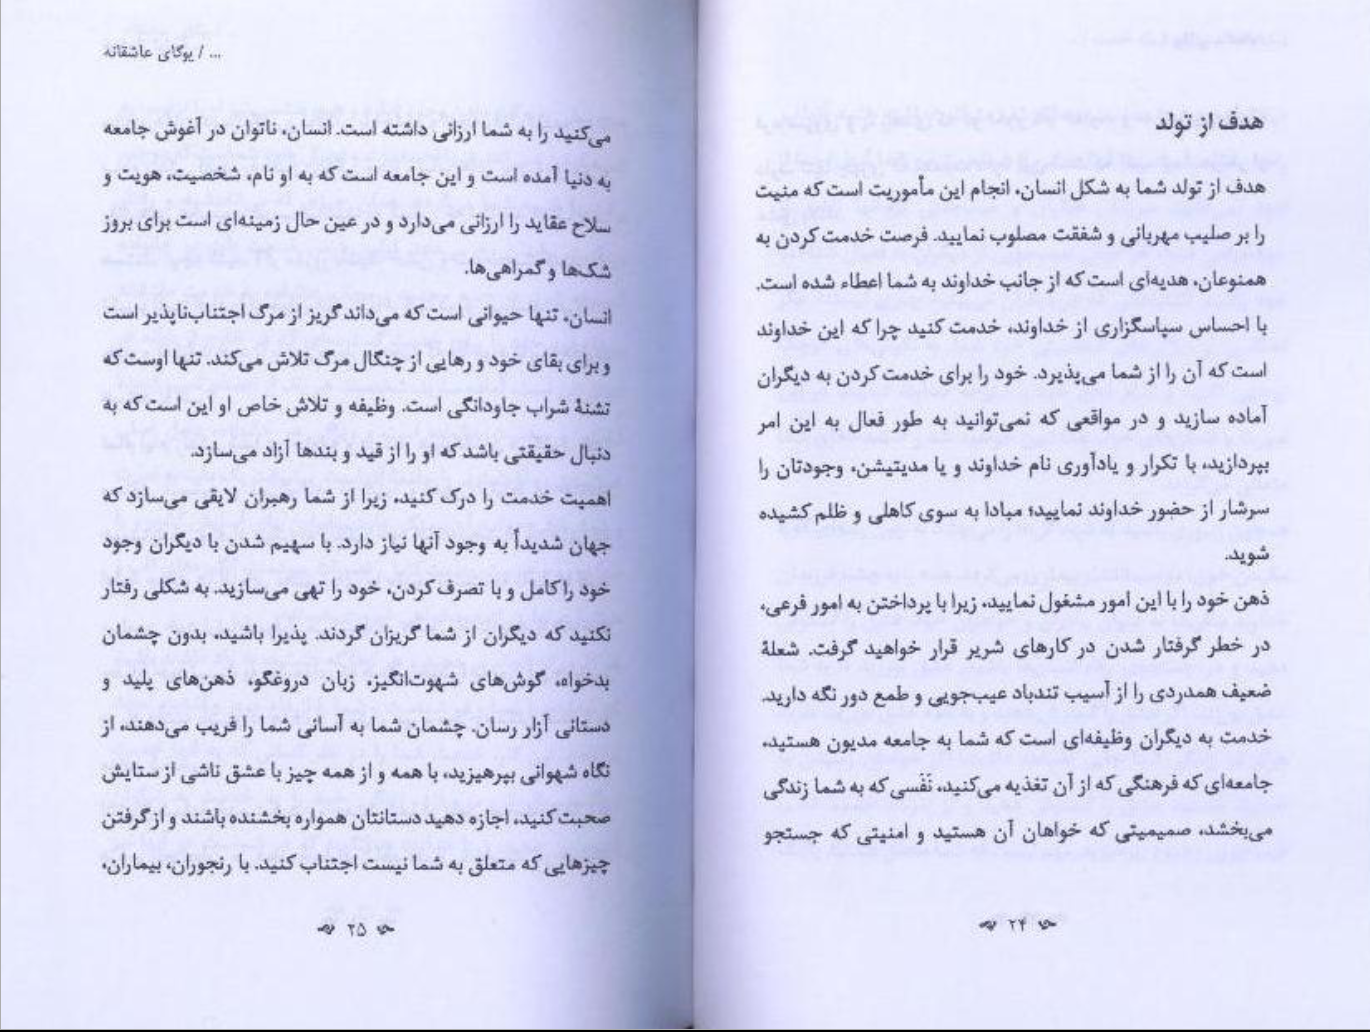 هدف از تولد
هدف از تولد شما به شکل انسان، انجام این مأموریت است که منیت
را بر صلیب مهربانی و شفقت مصلوب نمایید. فرصت خدمت کردن به
همنوعان، هدیه‌ای است که از جانب خداوند به شما اعطاء شده است.
با احساس سپاسگزاری از خداوند، خدمت کنید چرا که این خداوند
است که آن را از شما می‌پذیرد. خود را برای خدمت کردن به دیگران
آماده سازید و در مواقعی که نمی‌توانید به طور فعال به این امر
بپردازید، با تکرار و یادآوری نام خداوند و یا مدیتیشن، وجودتان را
سرشار از حضور خداوند نمایید؛ مبادا به سوی کاهلی و ظلم کشیده
شوید.
ذهن خود را با این امور مشغول نمایید، زیرا با پرداختن به امور فرعی،
در خطر گرفتار شدن در کارهای شریر قرار خواهید گرفت. شعلهٔ
ضعیف همدردی را از آسیب تندباد عیب‌جویی و طمع دور نگه دارید.
خدمت به دیگران وظیفه‌ای است که شما به جامعه مدیون هستید،
جامعه‌ای که فرهنگی که از آن تغذیه می‌کنید، نَفَسی که به شما زندگی
می‌بخشد، صمیمیتی که خواهان آن هستید و امنیتی که جستجو
۲۴
... / یوگای عاشقانه
می‌کنید را به شما ارزانی داشته است. انسان، ناتوان در آغوش جامعه
به دنیا آمده است و این جامعه است که به او نام، شخصیت، هویت و
سلاح عقاید را ارزانی می‌دارد و در عین حال زمینه‌ای است برای بروز
شک‌ها و گمراهی‌ها.
انسان، تنها حیوانی است که می‌داند گریز از مرگ اجتناب‌ناپذیر است
و برای بقای خود و رهایی از چنگال مرگ تلاش می‌کند. تنها اوست که
تشنهٔ شراب جاودانگی است. وظیفه و تلاش خاص او این است که به
دنبال حقیقتی باشد که او را از قید و بندها آزاد می‌سازد.
اهمیت خدمت را درک کنید، زیرا از شما رهبران لایقی می‌سازد که
جهان شدیداً به وجود آنها نیاز دارد. با سهیم شدن با دیگران وجود
خود را کامل و با تصرف کردن، خود را تهی می‌سازید. به شکلی رفتار
نکنید که دیگران از شما گریزان گردند. پذیرا باشید، بدون چشمان
بدخواه، گوش‌های شهوت‌انگیز، زبان دروغگو، ذهن‌های پلید و
دستانی آزار رسان. چشمان شما به آسانی شما را فریب می‌دهند، از
نگاه شهوانی بپرهیزید، با همه و از همه چیز با عشق ناشی از ستایش
صحبت کنید، اجازه دهید دستانتان همواره بخشنده باشند و از گرفتن
چیزهایی که متعلق به شما نیست اجتناب کنید. با رنجوران، بیماران،
۲۵